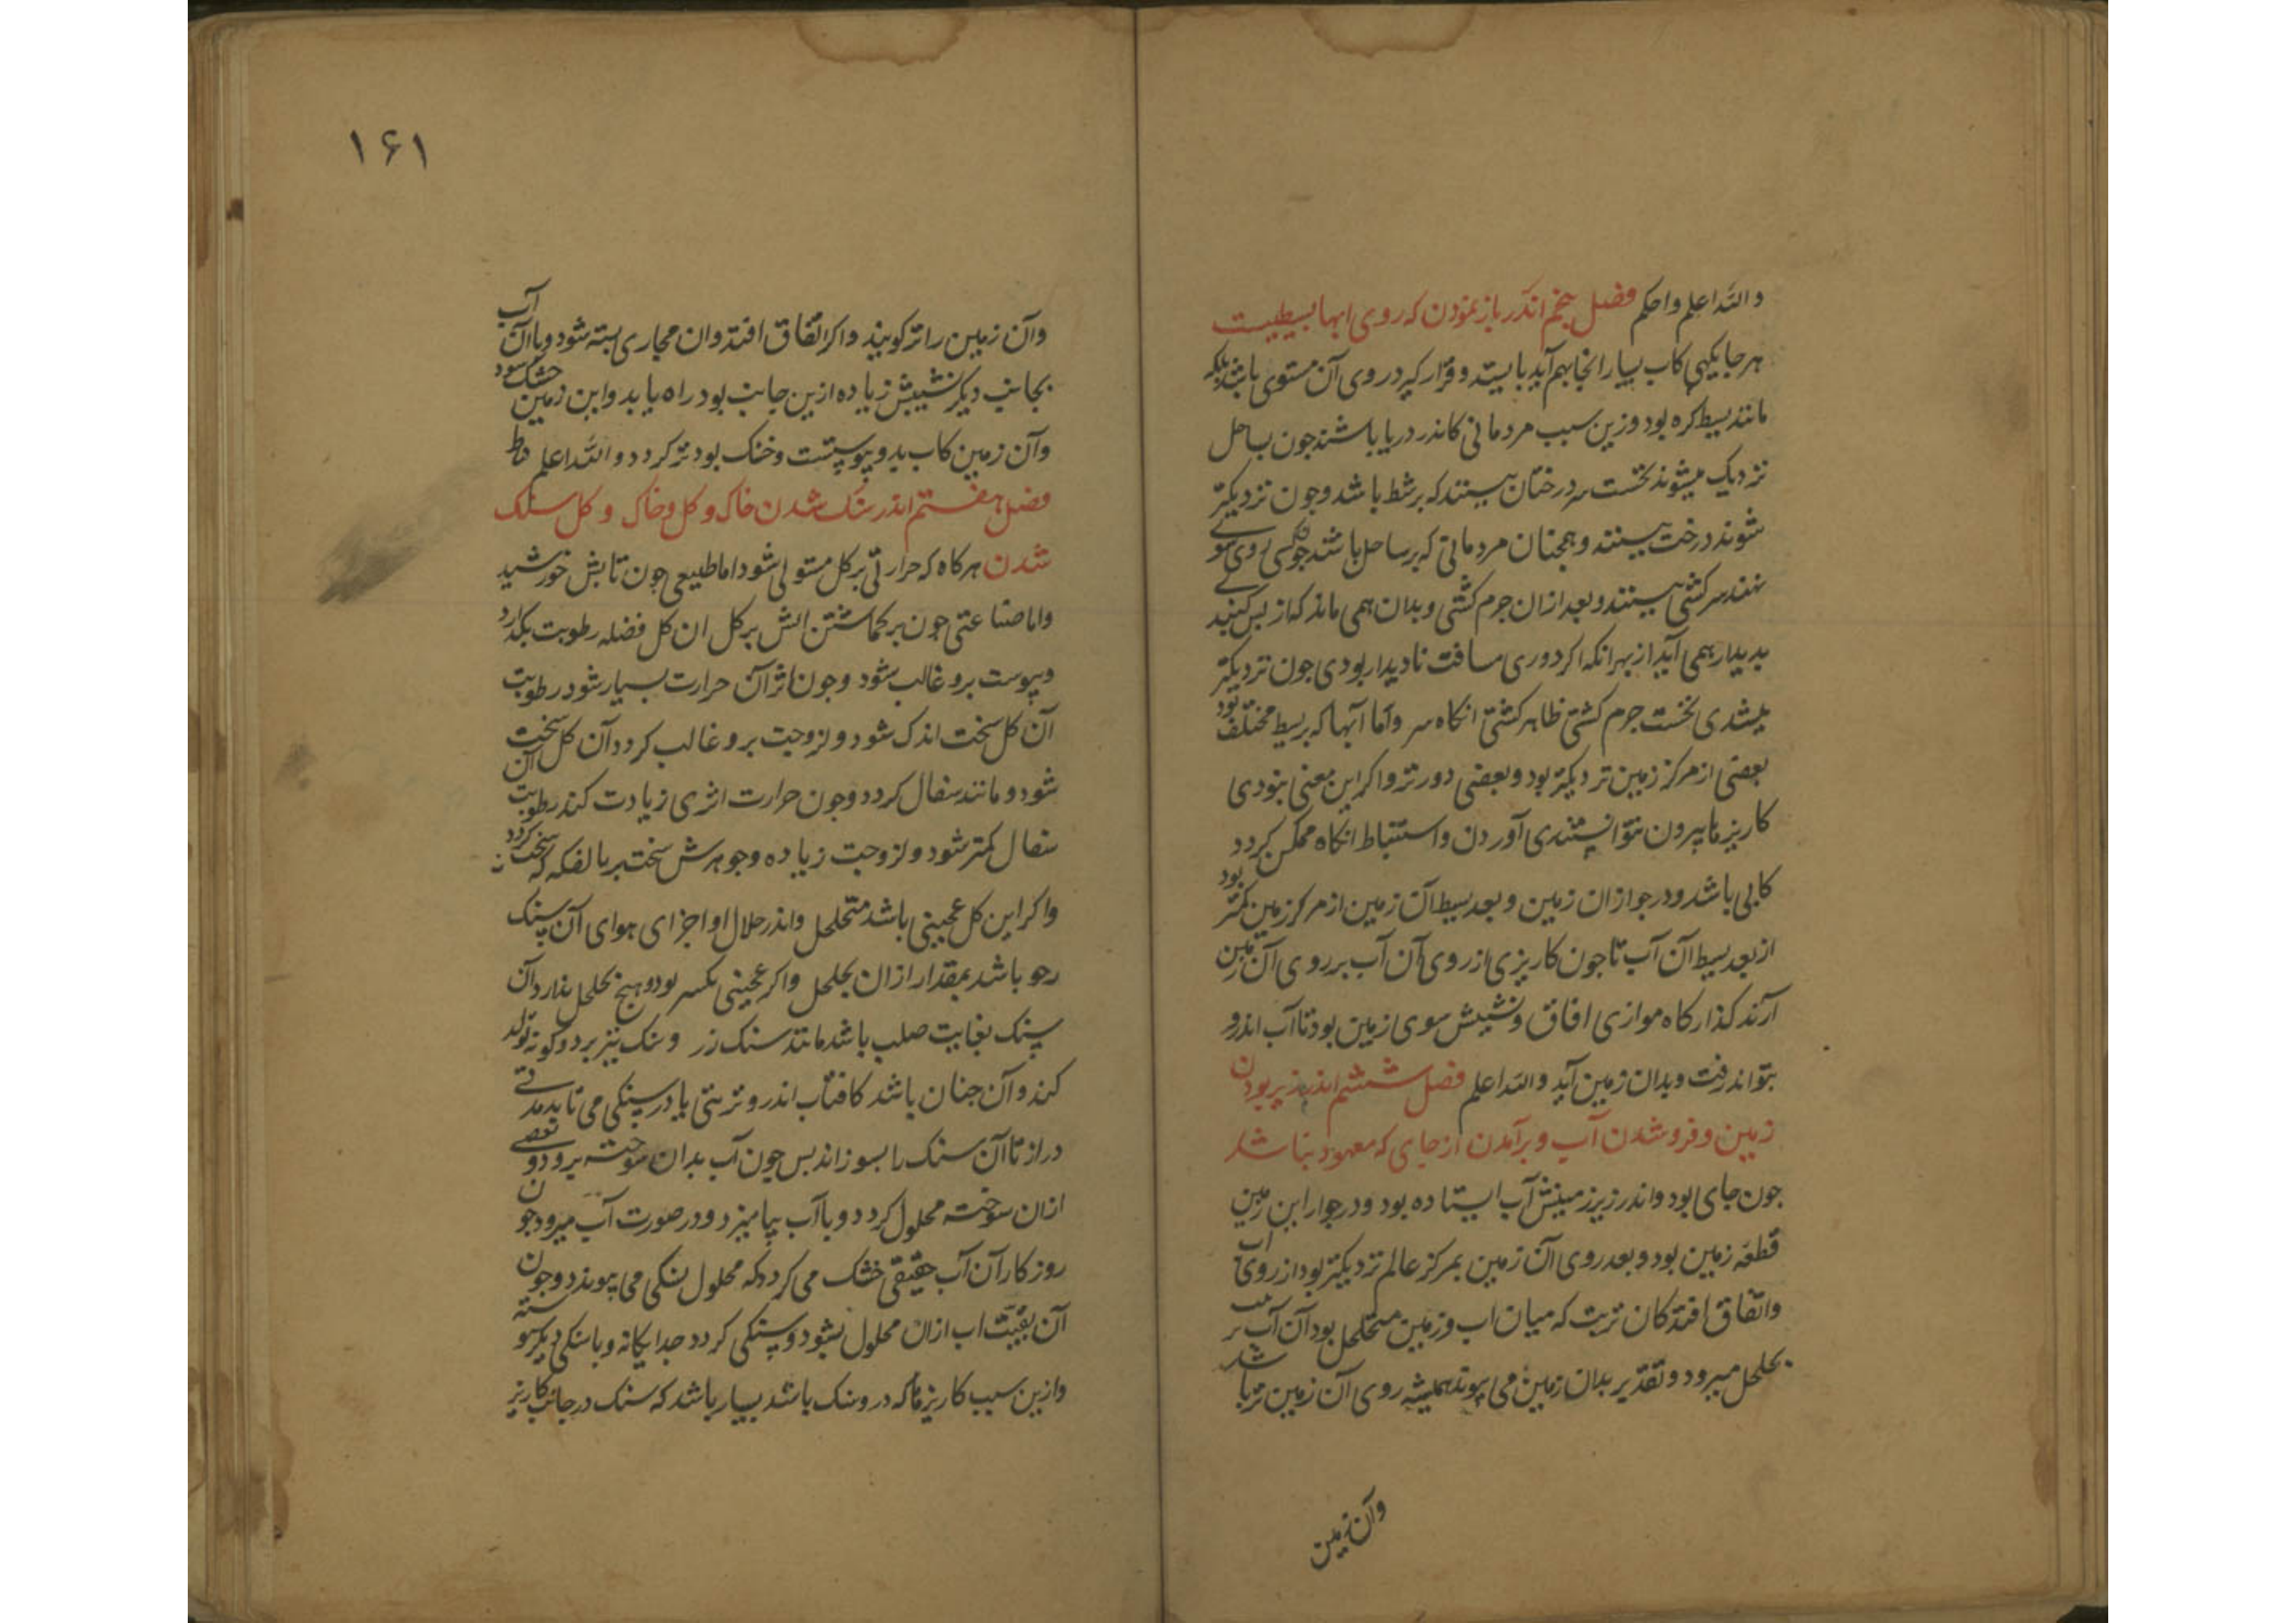 والله اعلم واحکم فصل پنجم اندر باز نمودن که روی ابها بسیطیست
هر جایکهی کاب بسیار انجا بهم آید بایستد و قرار گیرد روی آن مستوی باشد بلکه
مانند بسیط کره بود وزین سبب مردمانی کاندر دریا باشند جون بساحل
نزدیک میشوند نخست سر درختان بینند که بر شط باشد وجون نزدیکتر
شوند درخت بینند و همچنان مردمانی که بر ساحل باشند جون کسی روی سوی
نهند سر کشتی بینند و بعد ازان جرم کشتی و بدان همی ماند که از پس
بدیدار همی آید از بهر انکه اکر دوری مسافت نادیدار بودی جون نزدیکتر
میشدی نخست جرم کشتی ظاهر کشتی انکاه سر واما آبها که بر بسیط مختلف بود
بعضی از مرکز زمین نزدیکتر بود و بعضی دورتر و اکر این معنی نبودی
کاریزها بیرون نتوانستندی آوردن و استنباط انکاه ممکن کردد
کابی باشد و در جوار ان زمین و بعد بسیط آن زمین از مرکز زمین کمتر بود
از بعد بسیط آن آب تا جون کاریزی از روی آن آب بر روی آن زمین
آرند کذارکاه موازی افاق و نشیبش سوی زمین بود تا آب اندرو
بتواند رفت و بدان زمین آید والله اعلم فصل ششم اندر تر بودن
زمین و فرو شدن آب و برآمدن از جای که معهود نباشد
جون جای بود و اندر زیر زمینش آب ایستاده بود و در جوار این زمین
قطعه زمین بود و بعد روی آن زمین بمرکز عالم نزدیکتر بود از روی اب
واتفاق افتد کان تربت که میان اب و زمین متخلخل بود آن آب بر
بخلخل میرود و تقدیر بدان زمین می پیوندد همیشه روی آن زمین تر باشد
وآن زمین
۱۶۱
وآن زمین را تر کویند و اکر اتفاق افتد و ان مجاری بسته شود و یا آن آب
بجانب دیکر نشیبش زیاده ازین جانب بود راه یابد و این زمین خشک شود
وآن زمین کاب بدو پیوست و خشک بود تر کردد والله اعلم
فصل هفتم اندر سنک شدن خاک و کل و خاک و کل سنک
شدن هر کاه که حرارتی بر کل مستولی شود اما طبیعی جون تابش خورشید
واما صناعتی جون بر کماشتن اتش بر کل ان کل فضله رطوبت بکذارد
ویبوست برو غالب شود وجون اثر آن حرارت بسیار شود رطوبت
آن کل سخت اندک شود و لزوجیت برو غالب کردد آن کل سخت
شود و مانند سفال کردد وجون حرارت اثری زیادت کند رطوبت آن
سفال کمتر شود و لزوجیت زیاده و جوهرش سخت تر بالفکه که سخت کردد
واکر این کل عجینی باشد متخلخل و اندر خلال او اجزای هوای آن سنک
رخو باشد بمقدار ازان تخلخل واکر عجینی یکسر بود و هیچ تخلخل ندارد آن
سنک بغایت صلب باشد مانند سنک زر و سنک نیز بر دو کونه تولد
کند و آن جنان باشد کافتاب اندرو تربتی یا در سنکی می تابد مدتی
دراز تا آن سنک را بسوزاند بس جون آب بدان سوخته برود و بعضی
ازان سوخته محلول کردد و با آب بیامیزد و در صورت آب میرود جون
روزکار آن آب حقیقی خشک می کردد که محلول سنکی می پیوندد وجون
آن بقیت اب ازان محلول بشود و سنکی کردد جداکانه و با سنکی دیکر
وازین سبب کاریزها که درو سنک باشد بسیار باشد که سنک در جانب کاریز